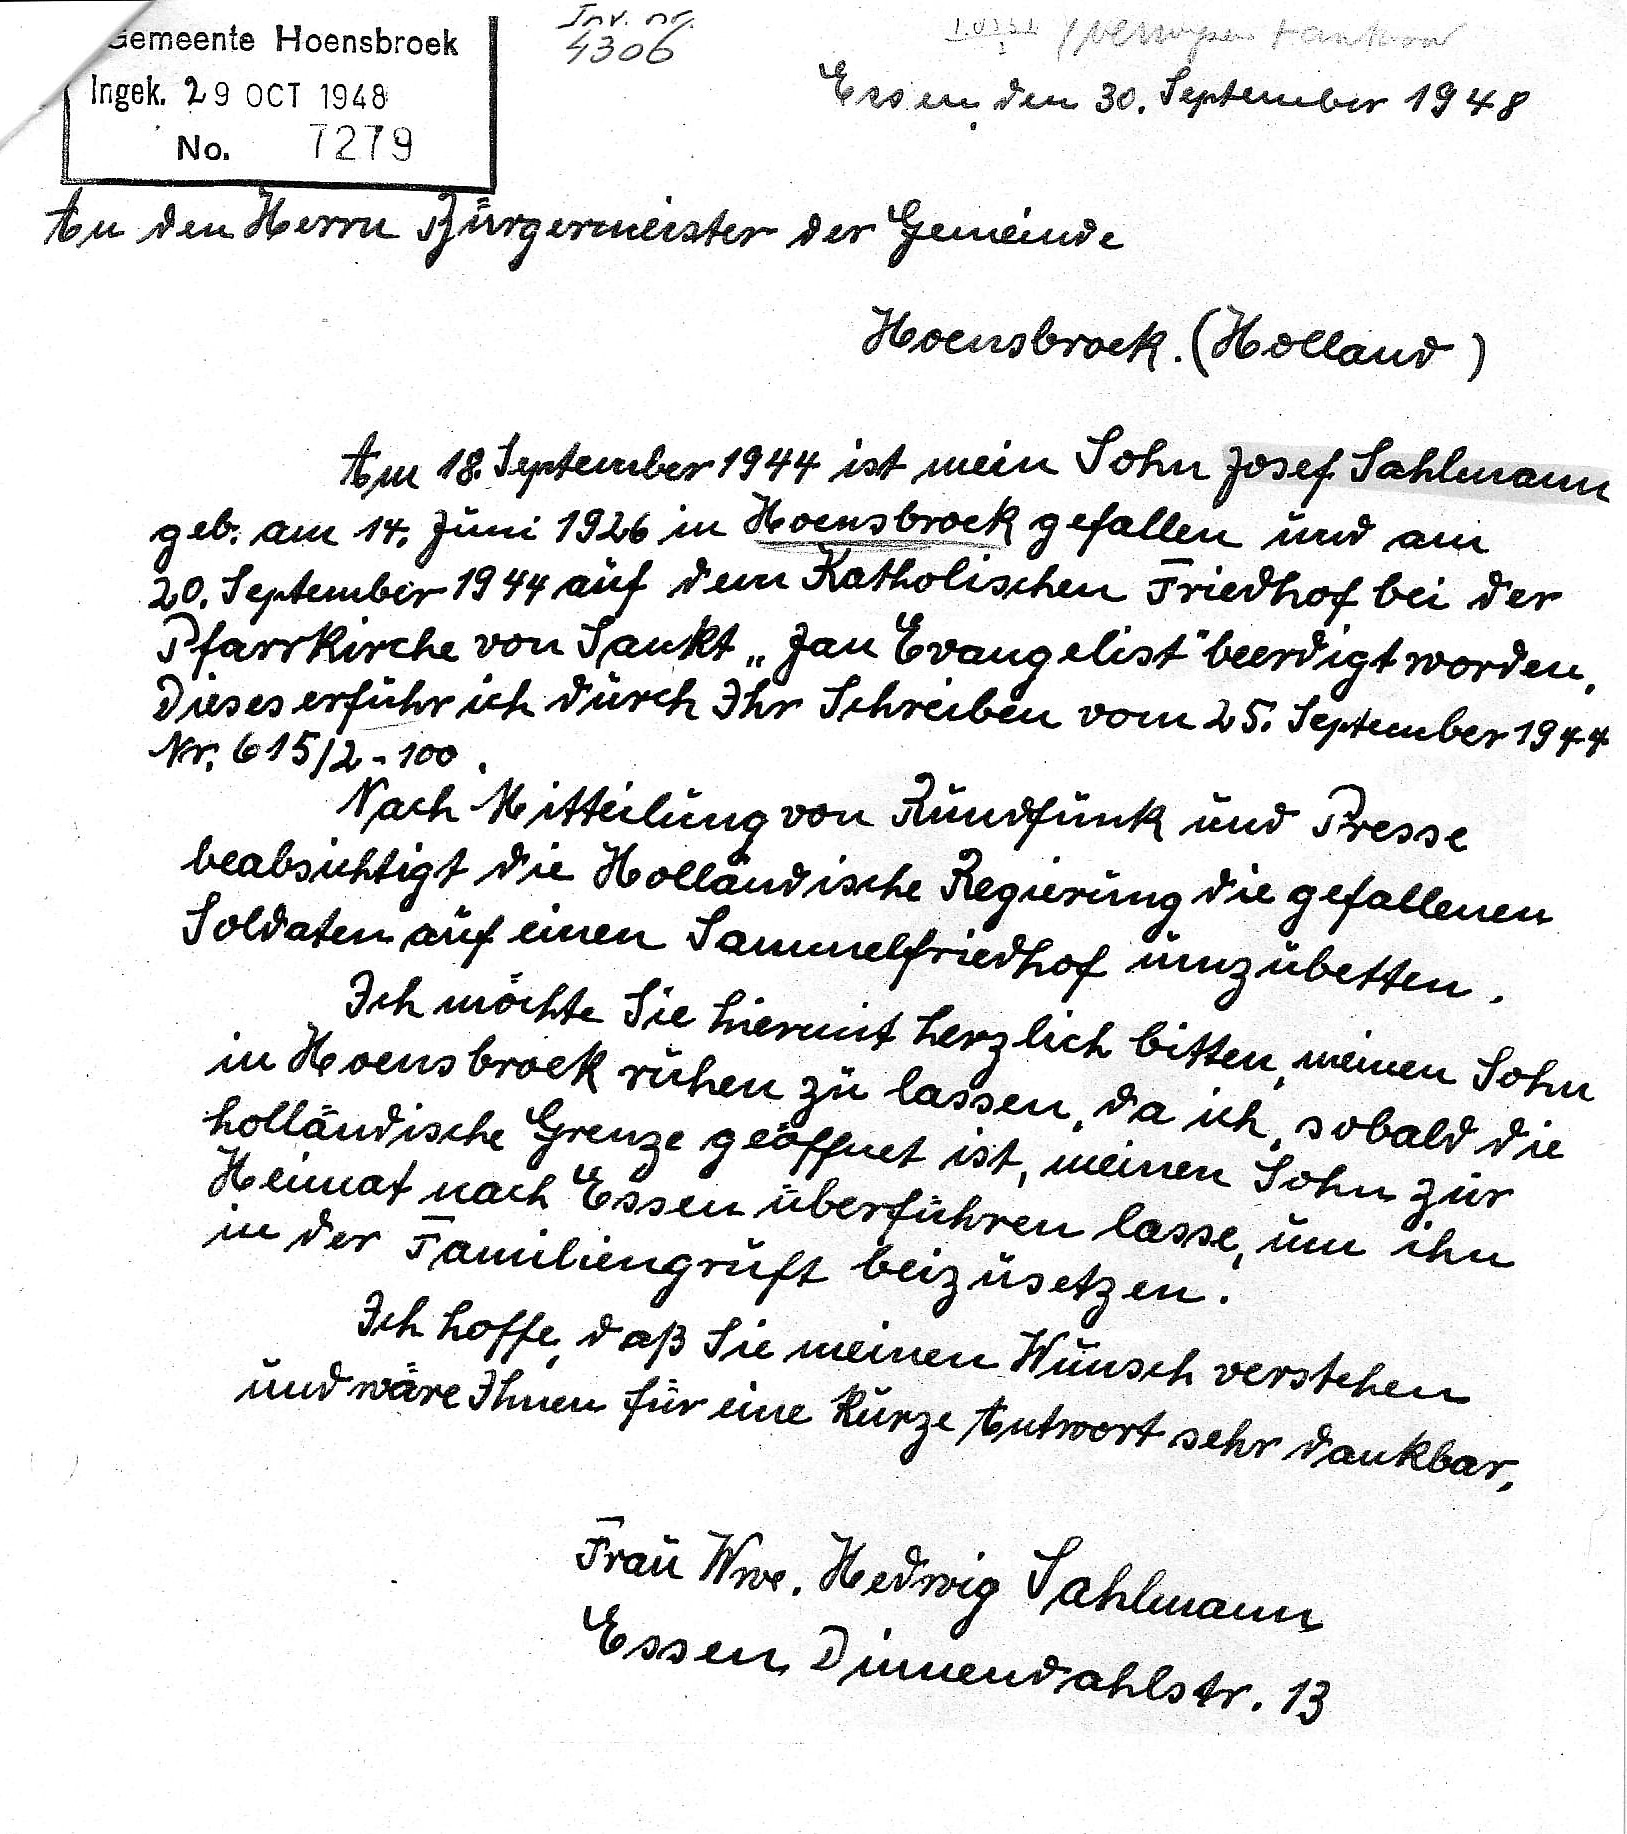 Gemeente Hoensbroek
Ingek. 29 OCT 1948
No. 7279
Inv. nr.
4306
Essen, den 30. September 1948
An den Herrn Bürgermeister der Gemeinde
Hoensbroek. (Holland)
Am 18. September 1944 ist mein Sohn Josef Sahlmann
geb. am 14. Juni 1926 in Hoensbroek gefallen und am
20. September 1944 auf dem Katholischen Friedhof bei der
Pfarrkirche von Sankt „Jan Evangelist" beerdigt worden.
Dieses erfuhr ich durch Ihr Schreiben vom 25. September 1944
Nr. 615/2-100.
Nach Mitteilung von Rundfunk und Presse
beabsichtigt die Holländische Regierung die gefallenen
Soldaten auf einen Sammelfriedhof umzubetten.
Ich möchte Sie hiermit herzlich bitten, meinen Sohn
in Hoensbroek ruhen zu lassen, da ich, sobald die
holländische Grenze geöffnet ist, meinen Sohn zur
Heimat nach Essen überführen lasse, um ihn
in der Familiengruft beizusetzen.
Ich hoffe, daß Sie meinen Wunsch verstehen
und wäre Ihnen für eine kurze Antwort sehr dankbar.
Frau Wwe. Hedwig Sahlmann
Essen, Dinnendahlstr. 13